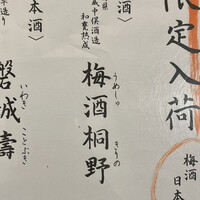 限定入荷
梅酒
日本
県
成中俣酒造
和甕熟成
梅酒桐野
うめしゅ
きりの
酒〉
本酒〉
米造り
磐城壽
いわき
ことぶき